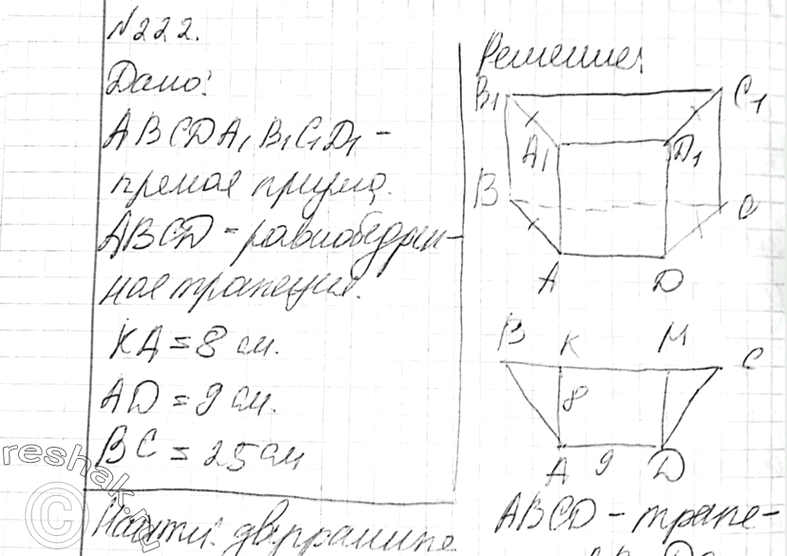 №222.
Дано:
ABCDA₁B₁C₁D₁ –
прямая призма.
ABCD – равнобедрен-
ная трапеция.
KA = 8 см.
AD = 9 см.
BC = 25 см
Найти: двугранные
Решение:
B₁ C₁
A₁ D₁
B C
A D
B K M C
8
A 9 D
ABCD – трапе-
reshak.ru
©